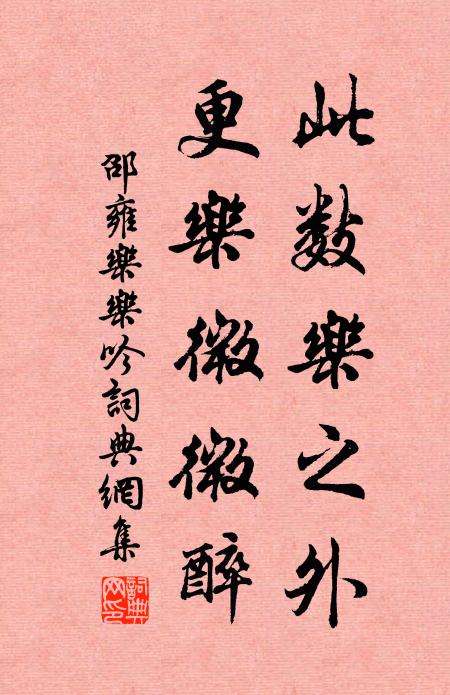 此数樂之外
更樂微微醉
邵雍樂樂吟詞典網集
詞典网印